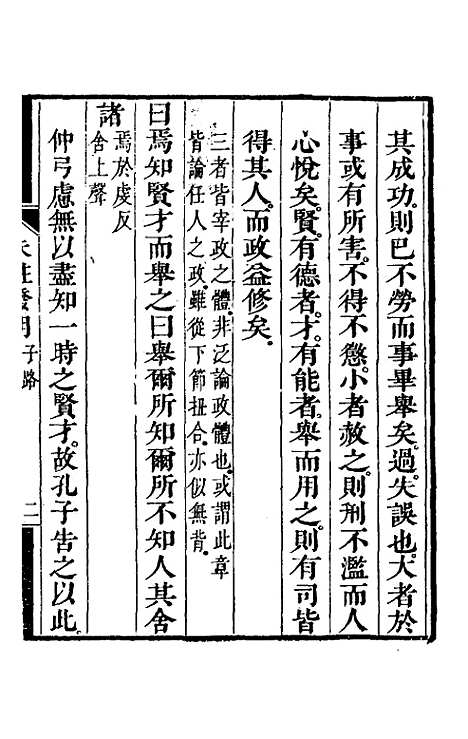 其成功則已不勞而事畢舉矣過失誤也大者於
事或有所害不得不懲小者赦之則刑不濫而人
心悅矣賢有德者才有能者舉而用之則有司皆
得其人而政益修矣
三者皆宰政之體非泛論政體也或謂此章
皆論任人之政雖從下節扭合亦似無背
曰焉知賢才而舉之曰舉爾所知爾所不知人其舍
諸
焉於虔反
舍上聲
仲弓慮無以盡知一時之賢才故孔子告之以此
朱註發明
子路
二